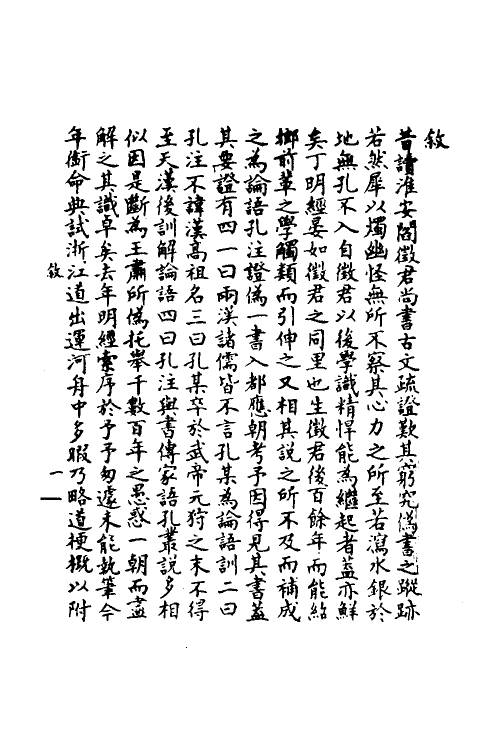 敘
昔讀淮安閻徵君尚書古文疏證歎其窮究偽書之蹤跡
若然犀以燭幽怪無所不察其心力之所至若瀉水銀於
地無孔不入自徵君以後學識精悍能為繼起者蓋亦鮮
矣丁明經晏如徵君之同里也生徵君後百餘年而能紹
鄉前輩之學觸類而引伸之又相其說之所不及而補成
之為論語孔注證偽一書入都應朝考予因得見其書蓋
其要證有四一曰兩漢諸儒皆不言孔某為論語訓二曰
孔注不諱漢高祖名三曰孔某卒於武帝元狩之末不得
至天漢後訓解論語四曰孔注與書傳家語孔叢說多相
似因是斷為王肅所偽托舉千數百年之愚惑一朝而盡
解之其識卓矣去年明經索序於予予匆遽未能執筆今
年銜命典試浙江道出運河舟中多暇乃略道梗概以附
敘
一